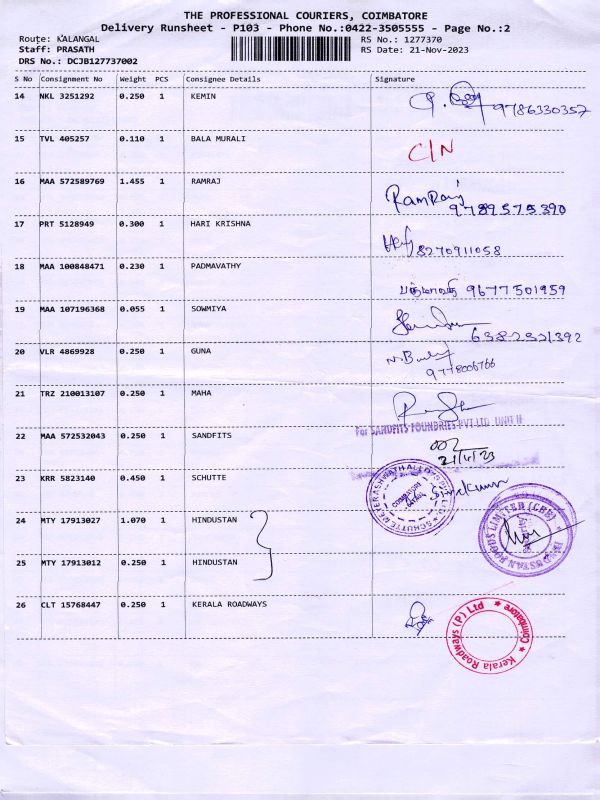 THE PROFESSIONAL COURIERS, COIMBATORE
Delivery Runsheet - P103 - Phone No.:0422-3505555 - Page No.:2
Route: KALANGAL RS No.: 1277370
Staff: PRASATH RS Date: 21-Nov-2023
DRS No.: DCJB127737002
S No Consignment No Weight PCS Consignee Details Signature
14 NKL 3251292 0.250 1 KEMIN
9786330357
15 TVL 405257 0.110 1 BALA MURALI
C/N
16 MAA 572589769 1.455 1 RAMRAJ
RamRaj
9789575390
17 PRT 5128949 0.300 1 HARI KRISHNA
8270911058
18 MAA 100848471 0.230 1 PADMAVATHY
பத்மாவதி 9677501959
19 MAA 107196368 0.055 1 SOWMIYA
6382321392
20 VLR 4869928 0.250 1 GUNA
9778006766
21 TRZ 210013107 0.250 1 MAHA
For SANDFITS FOUNDRIES PVT LTD UNIT II
22 MAA 572532043 0.250 1 SANDFITS
23 KRR 5823140 0.450 1 SCHUTTE
24 MTY 17913027 1.070 1 HINDUSTAN
25 MTY 17913012 0.250 1 HINDUSTAN
26 CLT 15768447 0.250 1 KERALA ROADWAYS
Kerala Roadways (P) Ltd ★ Coimbatore ★